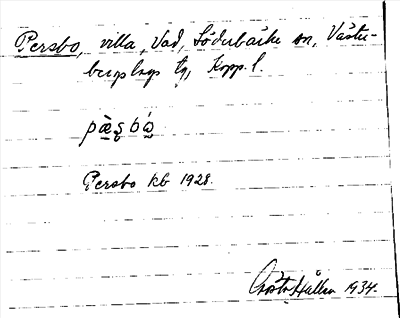 Persbo, villa, Vad, Söderbärke sn, Väster-
bergslags tg, Kopp. l.
pæ̀ʂbó
Persbo kb 1928.
1934.